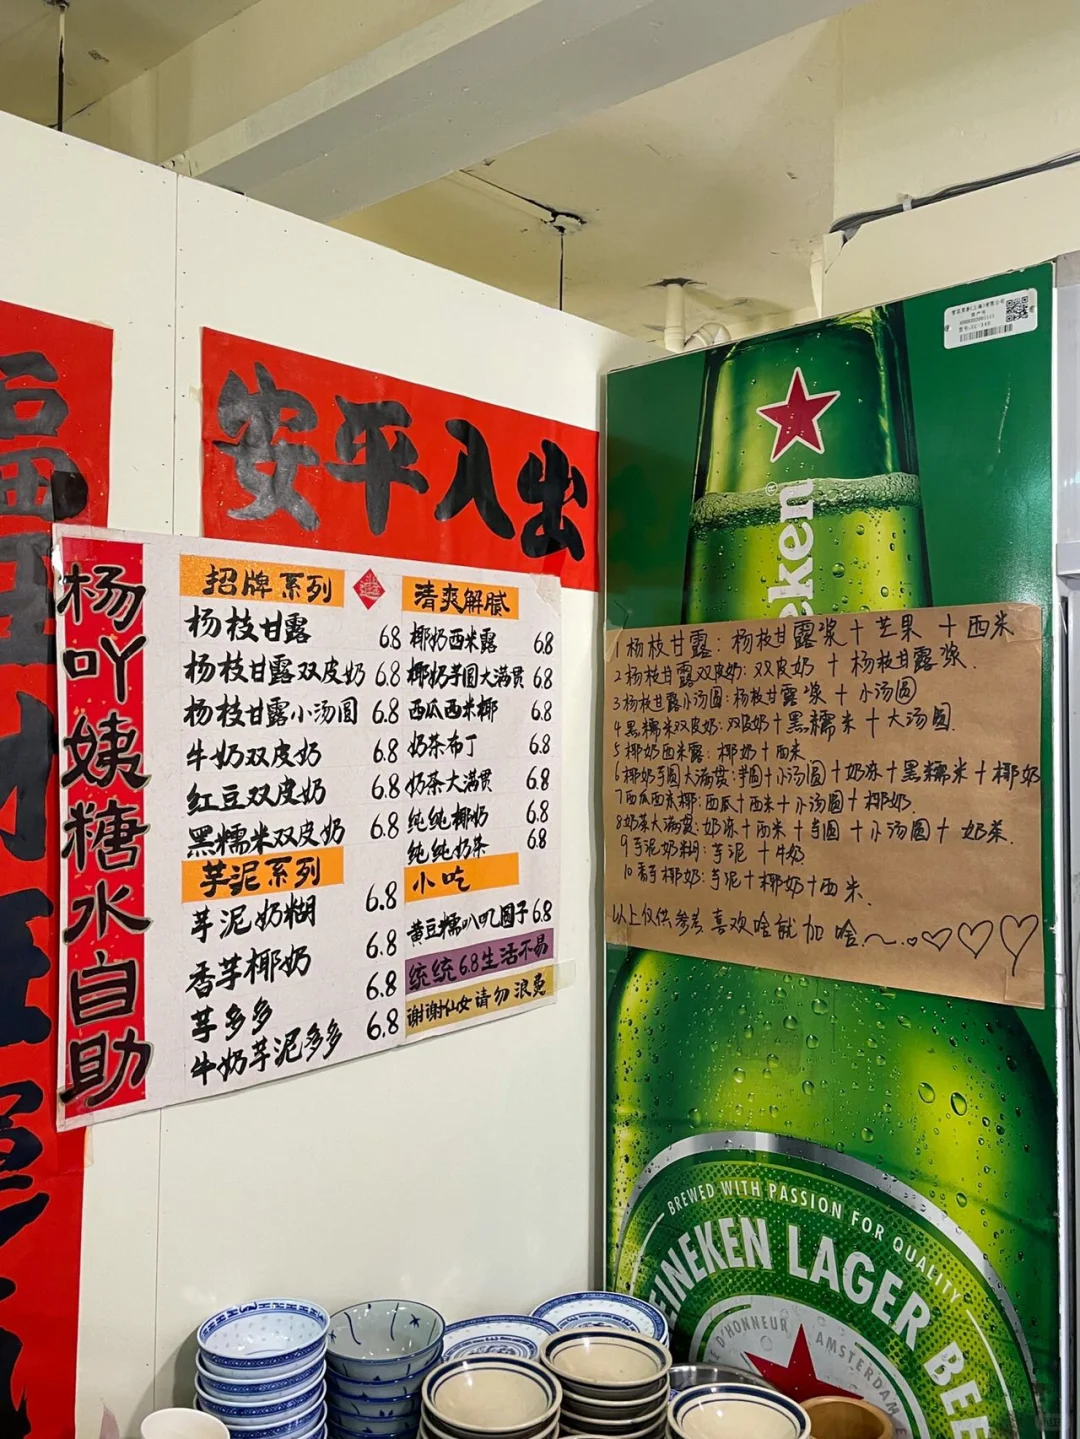 安平入出
杨吖姨糖水自助
招牌系列
杨枝甘露 6.8
杨枝甘露双皮奶 6.8
杨枝甘露小汤圆 6.8
牛奶双皮奶 6.8
红豆双皮奶 6.8
黑糯米双皮奶 6.8
芋泥系列
芋泥奶糊 6.8
香芋椰奶 6.8
芋多多 6.8
牛奶芋泥多多 6.8
清爽解腻
椰奶西米露 6.8
椰奶芋圆大满贯 6.8
西瓜西米椰 6.8
奶茶布丁 6.8
奶茶大满贯 6.8
纯纯椰奶 6.8
纯纯奶茶 6.8
小吃
黄豆糯叽叽圆子 6.8
统统6.8生活不易
谢谢仙女请勿浪费
1 杨枝甘露: 杨枝甘露浆 + 芒果 + 西米
2 杨枝甘露双皮奶: 双皮奶 + 杨枝甘露浆.
3 杨枝甘露小汤圆: 杨枝甘露浆 + 小汤圆
4 黑糯米双皮奶: 双皮奶 + 黑糯米 + 大汤圆.
5 椰奶西米露: 椰奶 + 西米
6 椰奶芋圆大满贯: 芋圆 + 小汤圆 + 奶冻 + 黑糯米 + 椰奶
7 西瓜西米椰: 西瓜 + 西米 + 小汤圆 + 椰奶.
8 奶茶大满贯: 奶冻 + 西米 + 芋圆 + 小汤圆 + 奶茶.
9 芋泥奶糊: 芋泥 + 牛奶
10 香芋椰奶: 芋泥 + 椰奶 + 西米.
以上仅供参考 喜欢啥就加啥.~
eken
BREWED WITH PASSION FOR QUALITY
EINEKEN LAGER BEE
D'HONNEUR AMSTERDAM